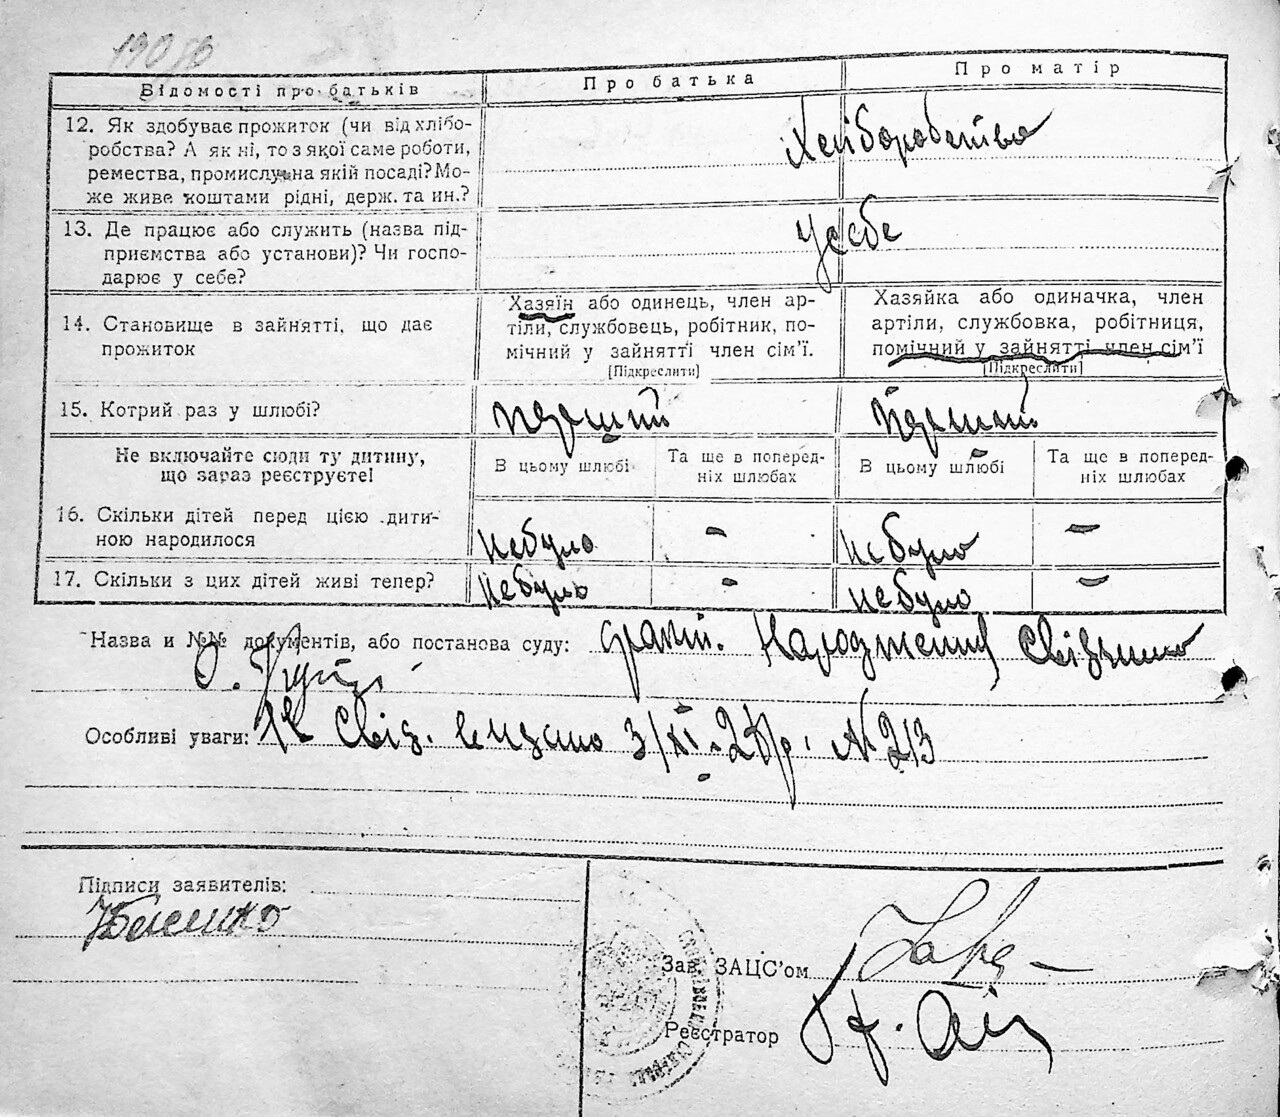 Відомості про батьків
Про батька
Про матір
12. Як здобуває прожиток (чи від хлібо-
робства? А як ні, то з якої саме роботи,
ремества, промислу, на якій посаді? Мо-
же живе коштами рідні, держ. та ин.?
Хліборобство
13. Де працює або служить (назва під-
приємства або установи)? Чи госпо-
дарює у себе?
у себе
14. Становище в зайнятті, що дає
прожиток
Хазяїн або одинець, член ар-
тіли, службовець, робітник, по-
мічний у зайнятті член сім'ї.
[Підкреслити]
Хазяйка або одиначка, член
артіли, службовка, робітниця,
помічний у зайнятті член сім'ї
[Підкреслити]
15. Котрий раз у шлюбі?
перший
перший
Не включайте сюди ту дитину,
що зараз реєструєте!
В цьому шлюбі
Та ще в поперед-
ніх шлюбах
В цьому шлюбі
Та ще в поперед-
ніх шлюбах
16. Скільки дітей перед цією дити-
ною народилося
небуло
-
небуло
-
17. Скільки з цих дітей живі тепер?
небуло
-
небуло
-
Назва и №№ документів, або постанова суду:
Народження
Особливі уваги:
Свід. видано 3/XI-2 р. № 213
Підписи заявителів:
Зав. ЗАЦС'ом
Реєстратор